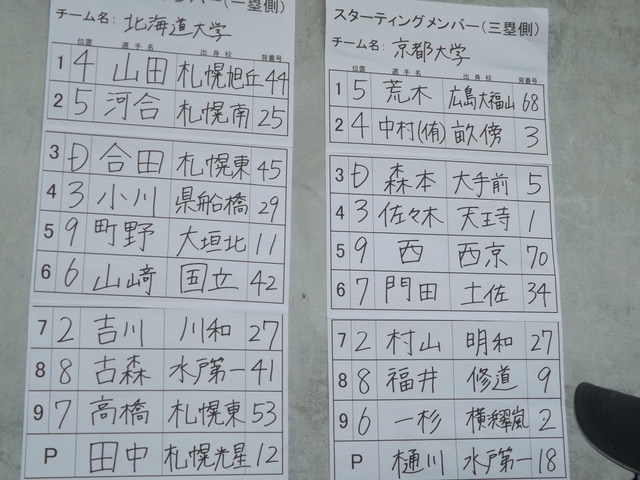 スターティングメンバー(一塁側)
チーム名: 北海道大学
位置 選手名 出身校 背番号
1 4 山田 札幌旭丘 44
2 5 河合 札幌南 25
3 D 合田 札幌東 45
4 3 小川 県船橋 29
5 9 町野 大垣北 11
6 6 山﨑 国立 42
7 2 吉川 川和 27
8 8 古森 水戸第一 41
9 7 高橋 札幌東 53
P 田中 札幌光星 12
スターティングメンバー(三塁側)
チーム名: 京都大学
位置 選手名 出身校 背番号
1 5 荒木 広島大福山 68
2 4 中村(侑) 畝傍 3
3 D 森本 大手前 5
4 3 佐々木 天王寺 1
5 9 西 西京 70
6 7 門田 土佐 34
7 2 村山 明和 27
8 8 福井 修道 9
9 6 一杉 横浜翠嵐 2
P 樋川 水戸第一 18